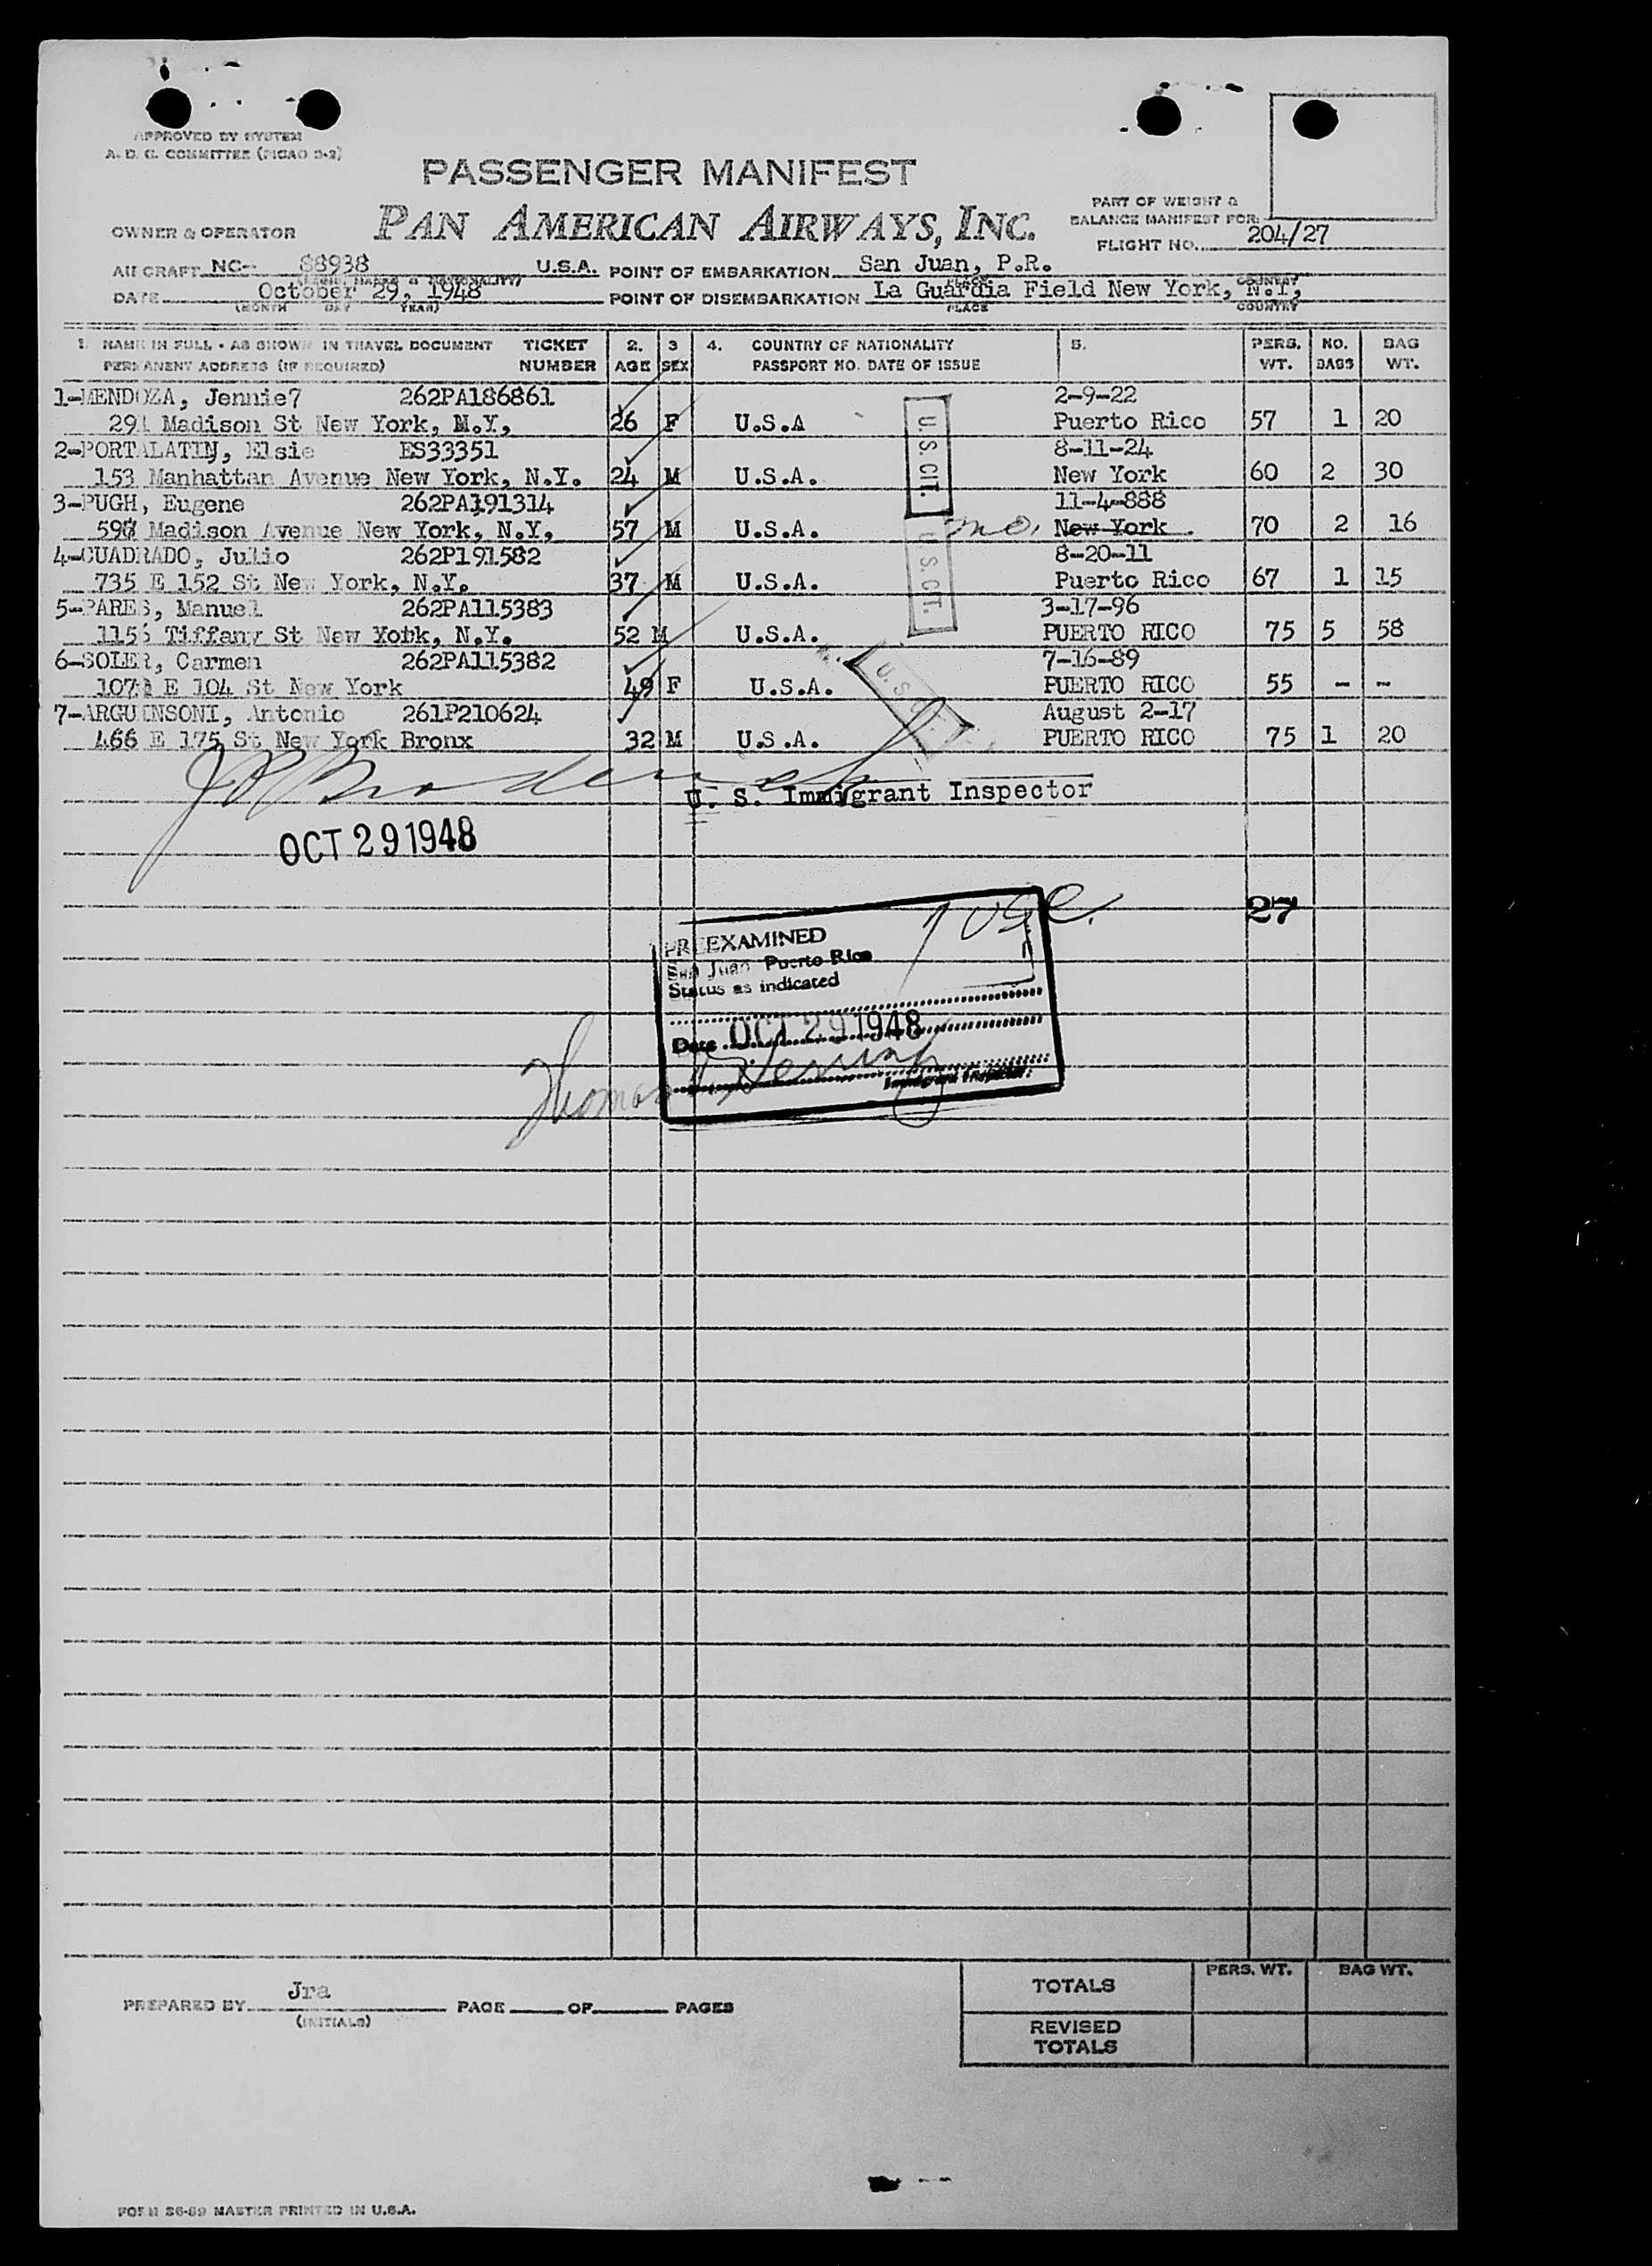 APPROVED BY SYSTEM
A. D. C. COMMITTEE (PICAO 3-2)
PASSENGER MANIFEST
PART OF WEIGHT &
BALANCE MANIFEST FOR:
OWNER & OPERATOR PAN AMERICAN AIRWAYS, INC.
FLIGHT NO. 204/27
AIRCRAFT NC-- 88938 U.S.A. POINT OF EMBARKATION San Juan, P.R.
PLACE COUNTRY
DATE October 29, 1948 POINT OF DISEMBARKATION La Guardia Field New York, N.Y,
(MONTH DAY YEAR) PLACE COUNTRY
1. NAME IN FULL - AS SHOWN IN TRAVEL DOCUMENT TICKET 2. 3 4. COUNTRY OF NATIONALITY 5. PERS. NO. BAG
PERMANENT ADDRESS (IF REQUIRED) NUMBER AGE SEX PASSPORT NO. DATE OF ISSUE WT. BAGS WT.
1-MENDOZA, Jennie7 262PA186861 2-9-22
291 Madison St New York, N.Y, 26 F U.S.A Puerto Rico 57 1 20
2-PORTALATIN, Elsie ES33351 8-11-24
153 Manhattan Avenue New York, N.Y. 24 M U.S.A. New York 60 2 30
U.S. CIT.
3-PUGH, Eugene 262PA191314 11-4-888
Madison Avenue New York, N.Y, 57 M U.S.A. mo. New York . 70 2 16
4-CUADRADO, Julio 262P191582 8-20-11
735 E 152 St New York, N.Y. 37 M U.S.A. Puerto Rico 67 1 15
U.S. CT.
5-PARES, Manuel 262PA115383 3-17-96
1156 Tiffany St New York, N.Y. 52 M U.S.A. PUERTO RICO 75 5 58
6-SOLER, Carmen 262PA115382 7-16-89
E 104 St New York 49 F U.S.A. PUERTO RICO 55 - -
7-ARGUINSONI, Antonio 261P210624 August 2-17
466 E 175 St New York Bronx 32 M U.S.A. PUERTO RICO 75 1 20
U. S. Immigrant Inspector
OCT 29 1948
7 USC. 27
PREEXAMINED
San Juan Puerto Rico
Status as indicated
Date OCT 29 1948
Thomas
Immigrant Inspector.
PERS. WT. BAG WT.
TOTALS
PREPARED BY Jra PAGE OF PAGES
(INITIALS)
REVISED
TOTALS
FORM 36-89 MASTER PRINTED IN U.S.A.